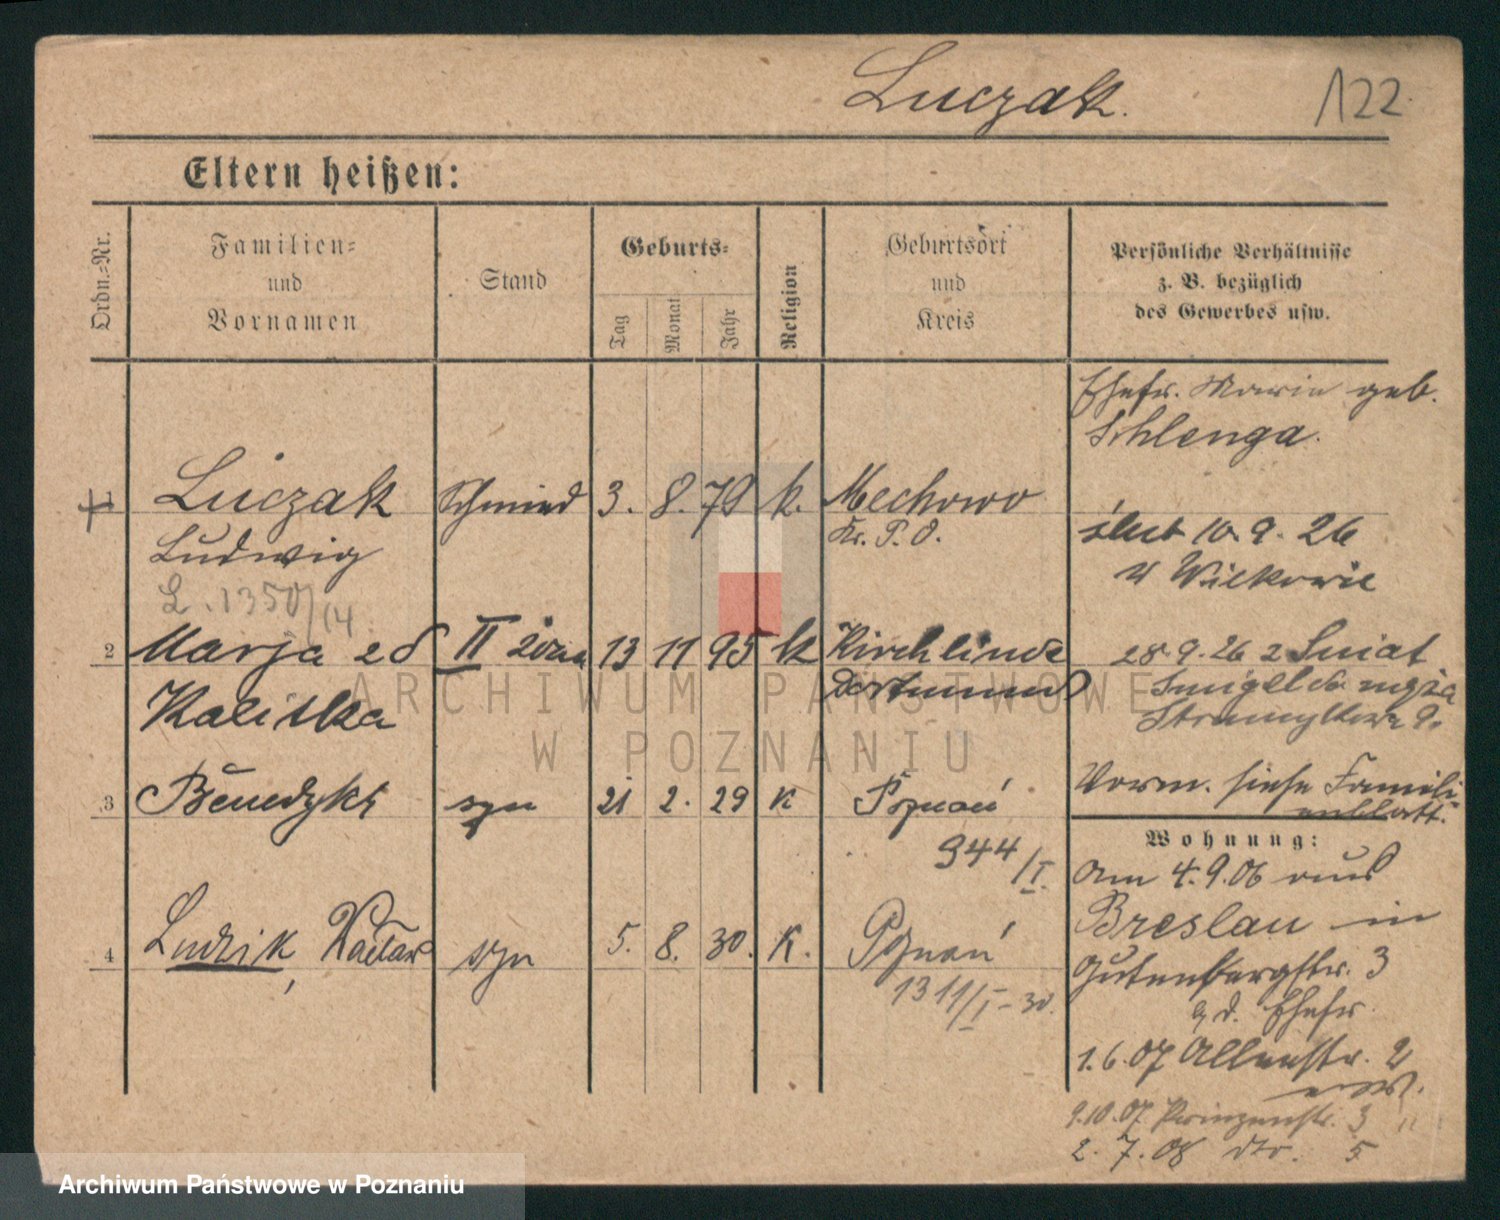 Luczak.
122
Eltern heißen:
Ordn.=Nr.
Familien=
und
Vornamen
Stand
Geburts=
Tag
Monat
Jahr
Religion
Geburtsort
und
Kreis
Persönliche Verhältnisse
z. B. bezüglich
des Gewerbes usw.
Ehefr. Maria geb.
Schlenga.
1 Luczak Schmied 3. 8. 79 k. Mechowo
Ludwig Kr. P. O.
ślub 10. 9. 26
L. 1350/14
2 Marja II żona 13 11 95 k Kirchlinde
Kalitka Dortmund
28. 9. 26
3 Benedykt syn 21 2. 29 K Poznań
944/I.
Vorm. siehe Famili
enblatt.
Wohnung:
am 4. 9. 06 aus
Breslau in
Gutenbergstr. 3
4 Ludwik, Wacław syn 5. 8. 30. K. Poznań
1311/I - 30.
Ehefr.
1. 6. 07 Allerstr. 2
9. 10. 07. Prinzenstr. 3 "
2. 7. 08 dto. 5
ARCHIWUM PAŃSTWOWE
W POZNANIU
Archiwum Państwowe w Poznaniu